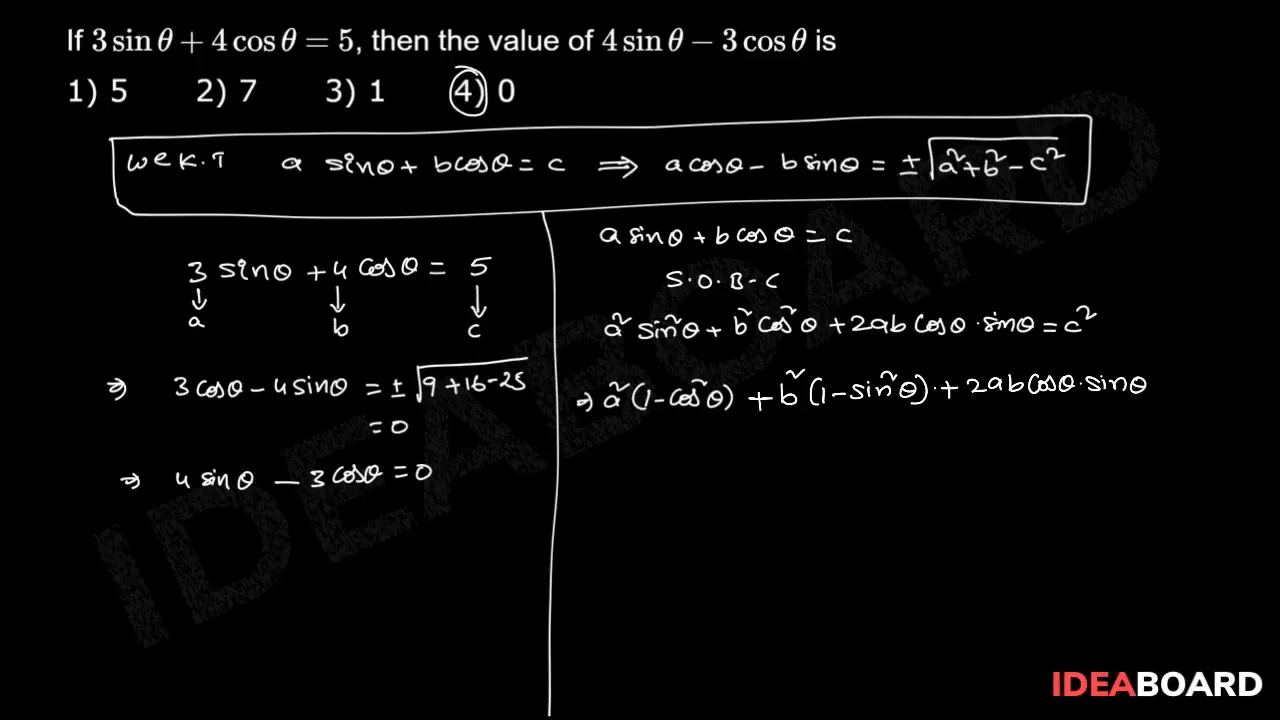 If 3 sin θ + 4 cos θ = 5, then the value of 4 sin θ − 3 cos θ is
1) 5 2) 7 3) 1 4) 0
we k.T a sinθ + b cosθ = c ⇒ a cosθ − b sinθ = ± √(a² + b² − c²)
3 sinθ + 4 cosθ = 5
↓ ↓ ↓
a b c
⇒ 3 cosθ − 4 sinθ = ± √(9 + 16 − 25)
= 0
⇒ 4 sinθ − 3 cosθ = 0
a sinθ + b cosθ = c
S.O.B-C
a² sin²θ + b² cos²θ + 2ab cosθ · sinθ = c²
⇒ a² (1 − cos²θ) + b² (1 − sin²θ) · + 2ab cosθ · sinθ
IDEABOARD
IDEABOARD